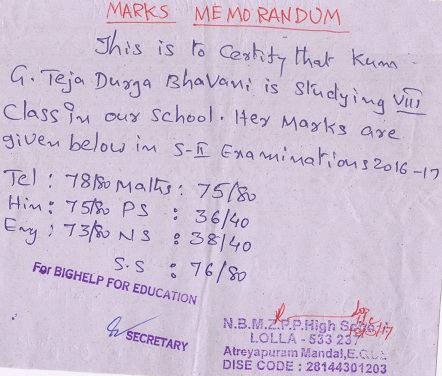 MARKS MEMORANDUM
This is to Certify that Kum
G. Teja Durga Bhavani is studying VIII
Class in our school. Her Marks are
given below in S-II Examinations 2016-17
Tel : 78/80 Maths : 75/80
Hin : 75/80 PS : 36/40
Eng : 73/80 NS : 38/40
S.S : 76/80
For BIGHELP FOR EDUCATION
SECRETARY
N.B.M.Z.P.P.High
LOLLA - 533 237
Atreyapuram Mandal,E.G.
DISE CODE : 28144301203